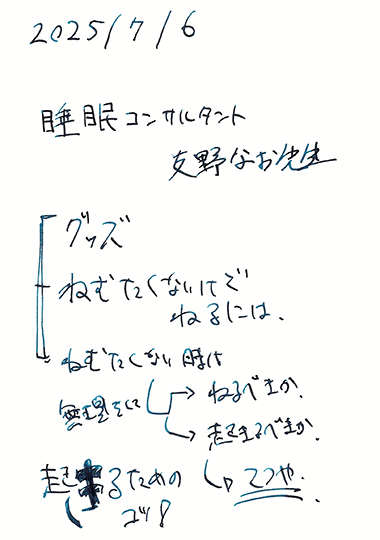 2025/7/6
睡眠コンサルタント
友野なお先生
グッズ
ねむたくないけど
ねるには、
ねむたくない時は
無理をして
ねるべきか、
起きるべきか、
起きるための
コツ!
てつや、